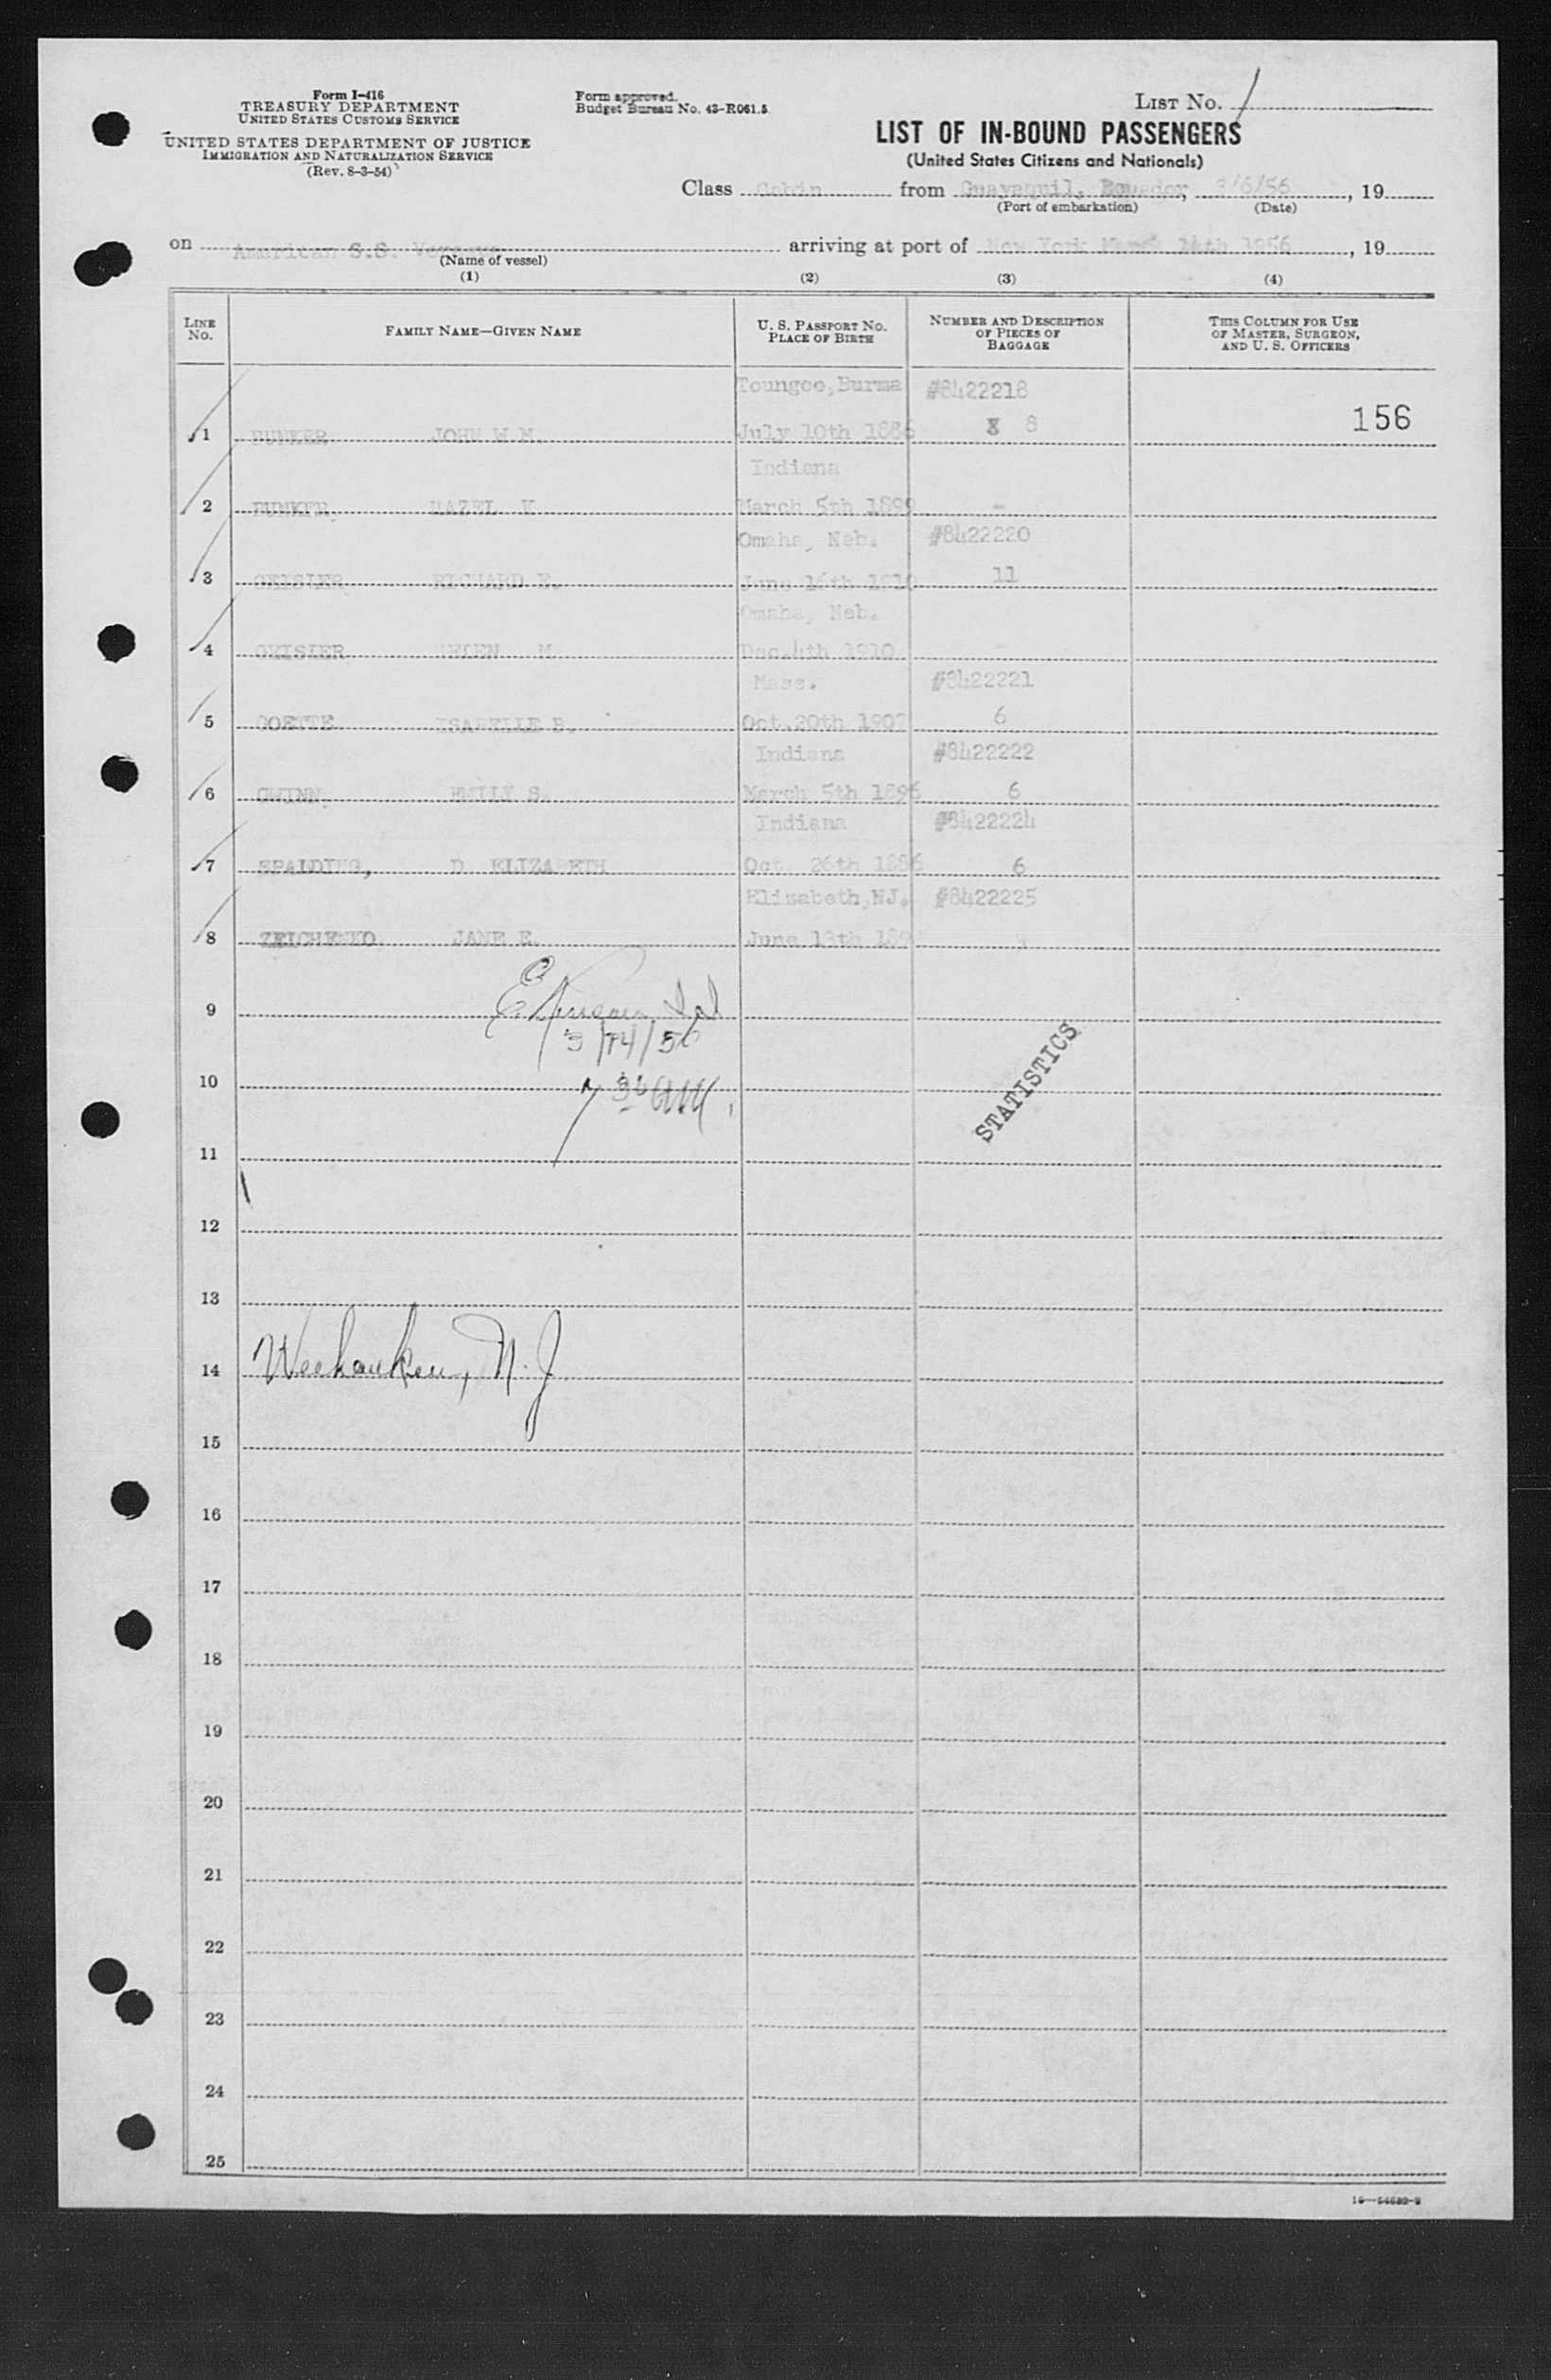 Form I-416
TREASURY DEPARTMENT
UNITED STATES CUSTOMS SERVICE
UNITED STATES DEPARTMENT OF JUSTICE
IMMIGRATION AND NATURALIZATION SERVICE
(Rev. 8-3-54)
Form approved.
Budget Bureau No. 43-R061.5
LIST No. 1
LIST OF IN-BOUND PASSENGERS
(United States Citizens and Nationals)
Class Cabin from Guayaquil, Ecuador, 3/6/56, 19
(Port of embarkation) (Date)
on American S.S. arriving at port of New York March 14th 1956, 19
(Name of vessel)
(1) (2) (3) (4)
LINE No. FAMILY NAME—GIVEN NAME U. S. PASSPORT No. PLACE OF BIRTH NUMBER AND DESCRIPTION OF PIECES OF BAGGAGE THIS COLUMN FOR USE OF MASTER, SURGEON, AND U. S. OFFICERS
Toungoo, Burma #8422218
1 BUNKER JOHN W.M. July 10th 1886 8 156
Indiana
2 BUNKER, HAZEL K March 5th 1899 -
Omaha, Neb. #8422220
3 GEISLER RICHARD E. June 16th 1910 11
Omaha, Neb.
4 GEISLER HELEN M Dec.4th 1910 -
Mass. #8422221
5 GOETTE ISABELLE B. Oct.20th 1907 6
Indiana #8422222
6 GWINN, EMILY S. March 5th 1896 6
Indiana #8422224
7 SPALDING, D. ELIZABETH Oct. 26th 1886 6
Elizabeth, NJ. #8422225
8 ZEICHENKO JANE E. June 13th
9
3/14/56
10
7 30 AM.
STATISTICS
11
12
13
14 Weehauken, N.J.
15
16
17
18
19
20
21
22
23
24
25